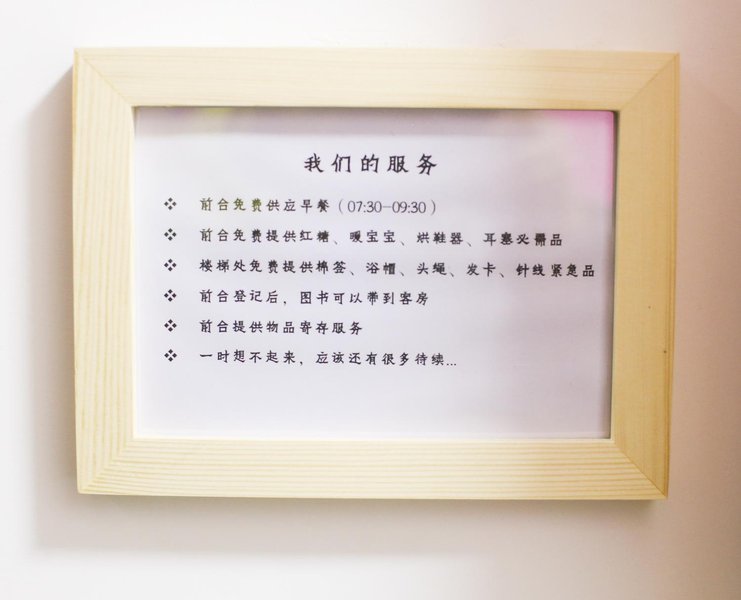 我们的服务
❖ 前台免费供应早餐（07:30—09:30）
❖ 前台免费提供红糖、暖宝宝、烘鞋器、耳塞必需品
❖ 楼梯处免费提供棉签、浴帽、头绳、发卡、针线紧急品
❖ 前台登记后，图书可以带到客房
❖ 前台提供物品寄存服务
❖ 一时想不起来，应该还有很多待续...